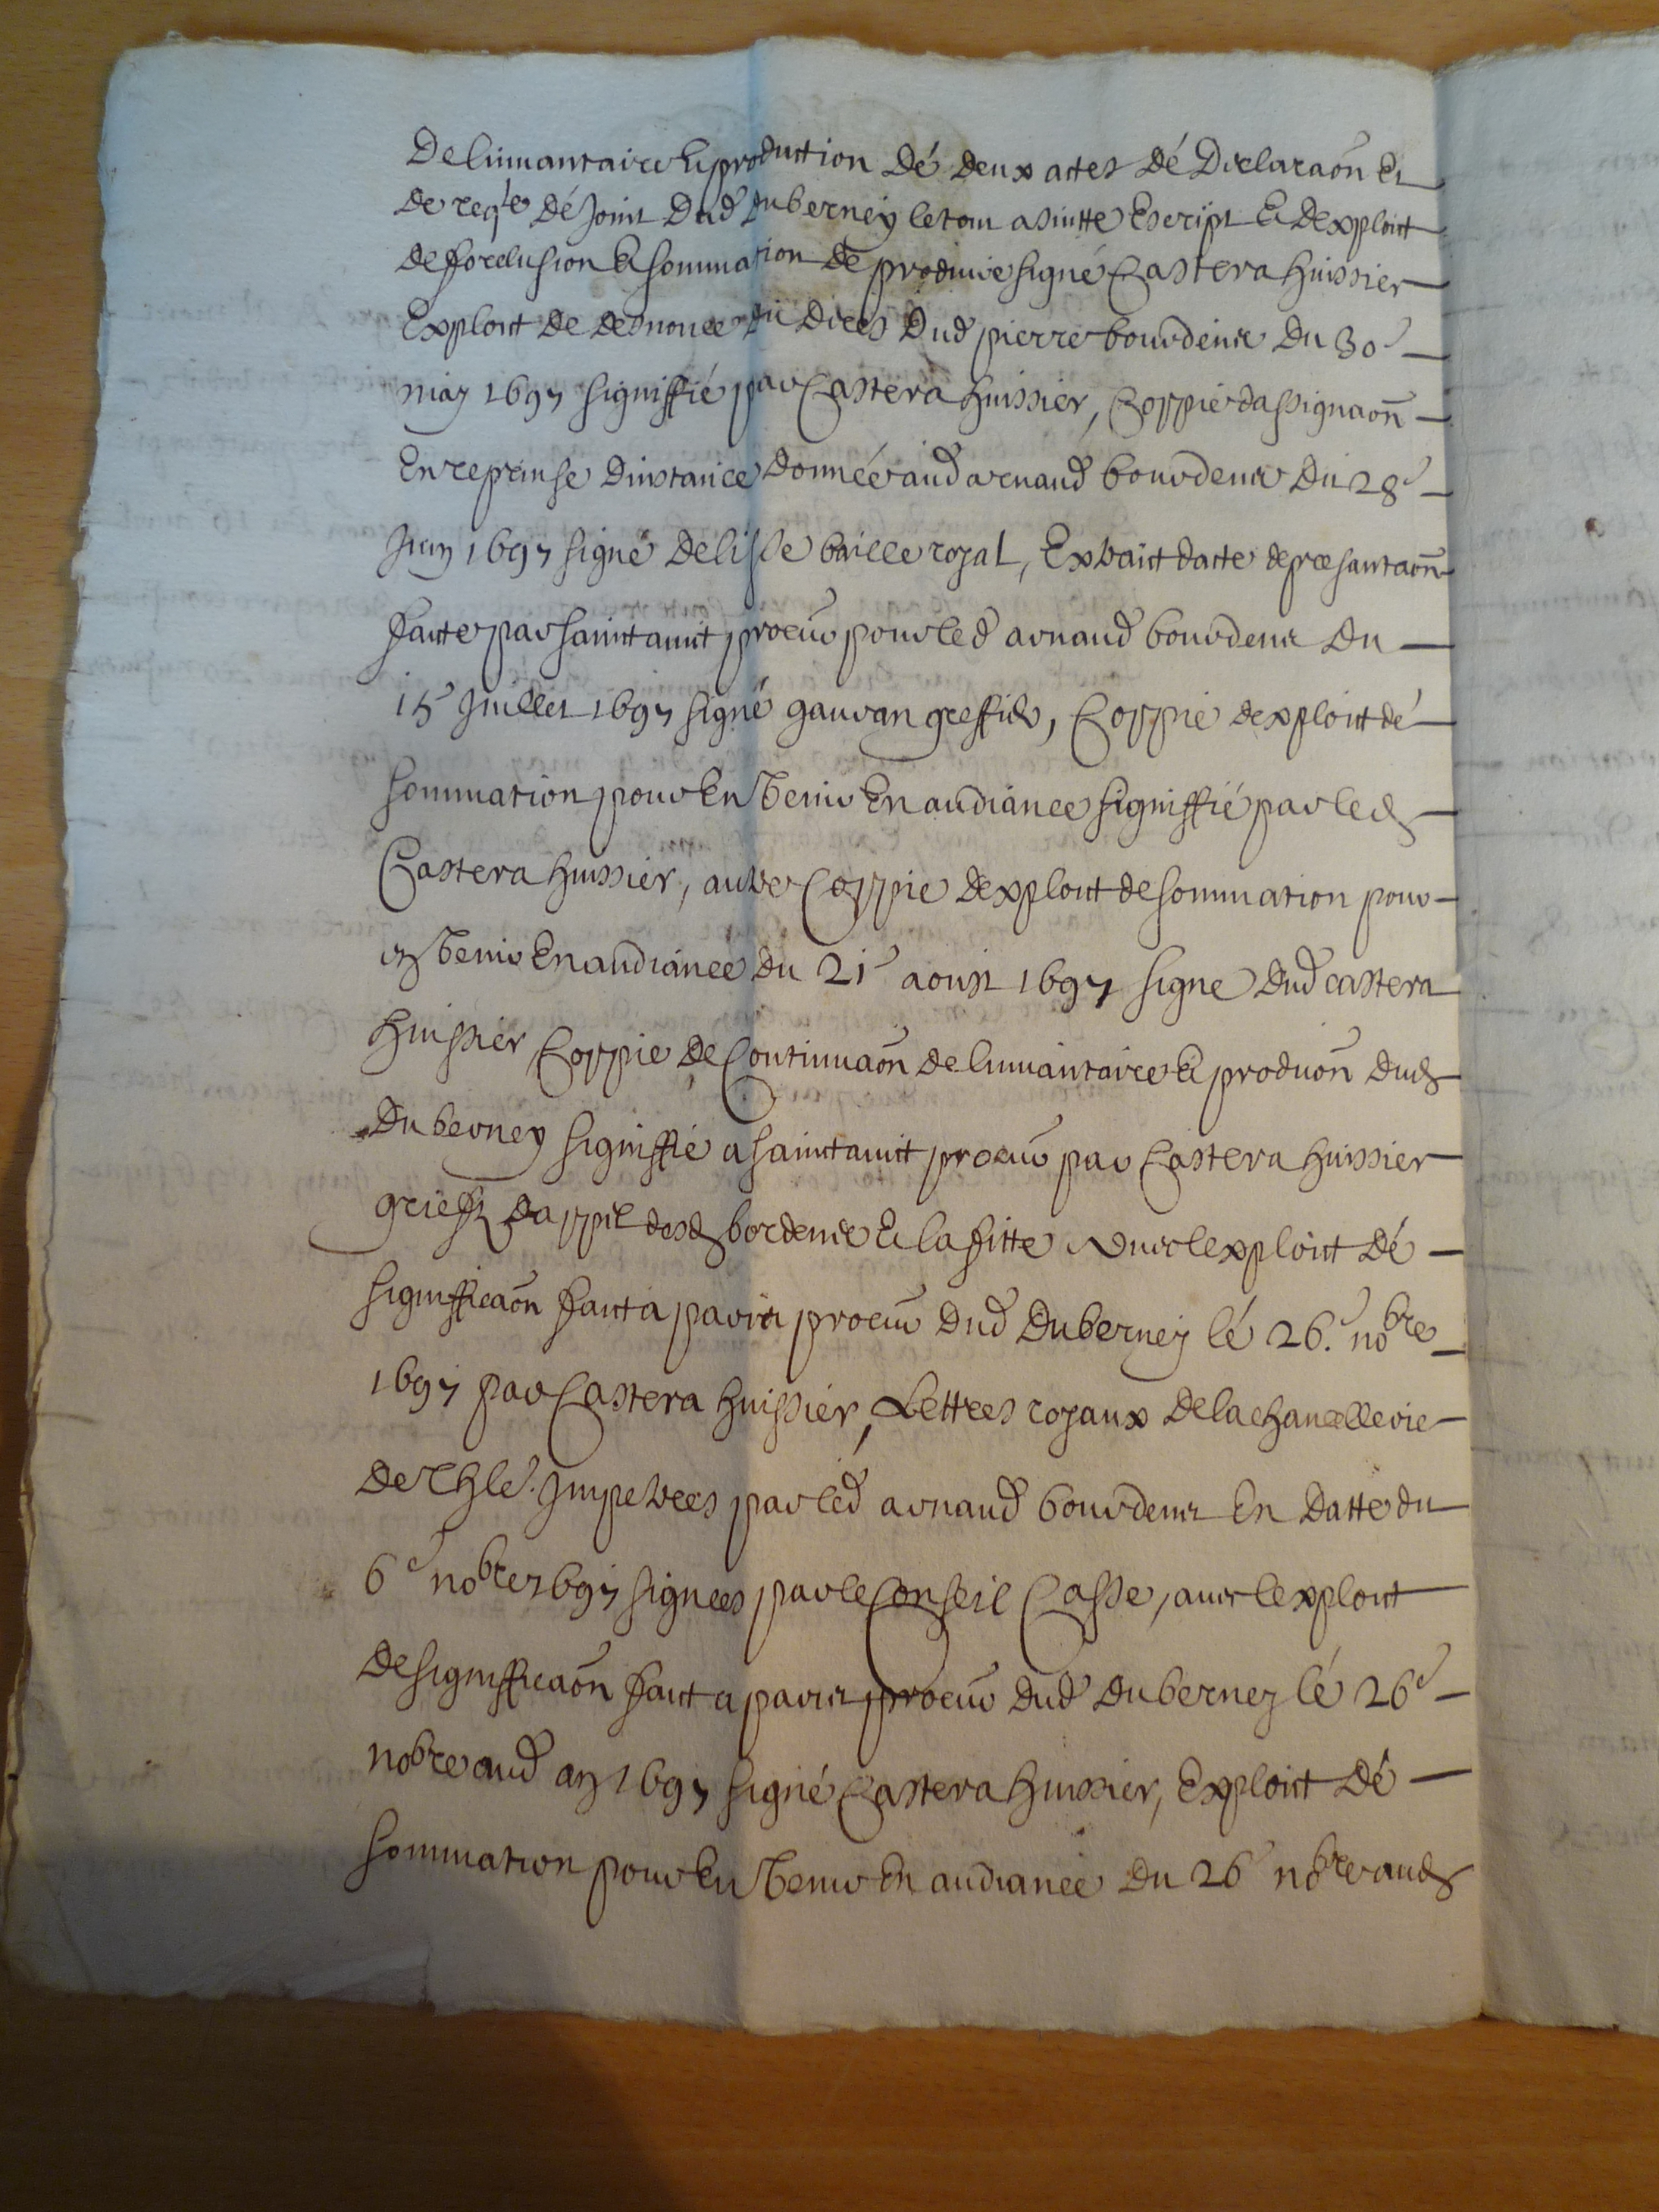 De linvantaire & production dé deux actes dé Declaraôn Et
de reqte dé Joint Dud Duberney le tout a suitte Escript & Dexploit
de forclusion & sommation de produire signé Castera huissier
Exploit de denonce du deces Dud pierre bourdenx du 30e
may 1697 signiffié par Castera huissier, Coppie dassignaôn
En reprinse dinstance donnée aud arnaud bourdenx du 28e
Juin 1697 signé Delisle baille royal, Extraict dacte de presantaôn
faitte par saint amit procur pour led arnaud bourdenx du
15e Juillet 1697 signé gauvan greffier, Coppie dexploit dé
sommation pour En Venir En audiance signiffié par led
Castera huissier, autre Coppie dexploit de sommation pour
En Venir En audiance du 21e aoust 1697 signé dud castera
huissier Coppie de Continuaôn de linvantaire & produôn dud
Duberney signiffié a saint amit procur par Castera huissier
griefz dappel desd bordenx & lafitte avec lexploit dé
signifficaôn fait a procur dud Duberney lé 26e nobre
1697 par Castera huissier, Lettres royaux de la chancellerie
de Thle Impetrées par led arnaud bourdenx En datte du
6e nobre 1697 signées par le Conseil Casse, avec lexploit
de signifficaôn fait a procur dud Duberney lé 26e
nobre aud an 1697 signé Castera huissier, Exploit dé
sommation pour En Venir En audiance du 26e nobre aud